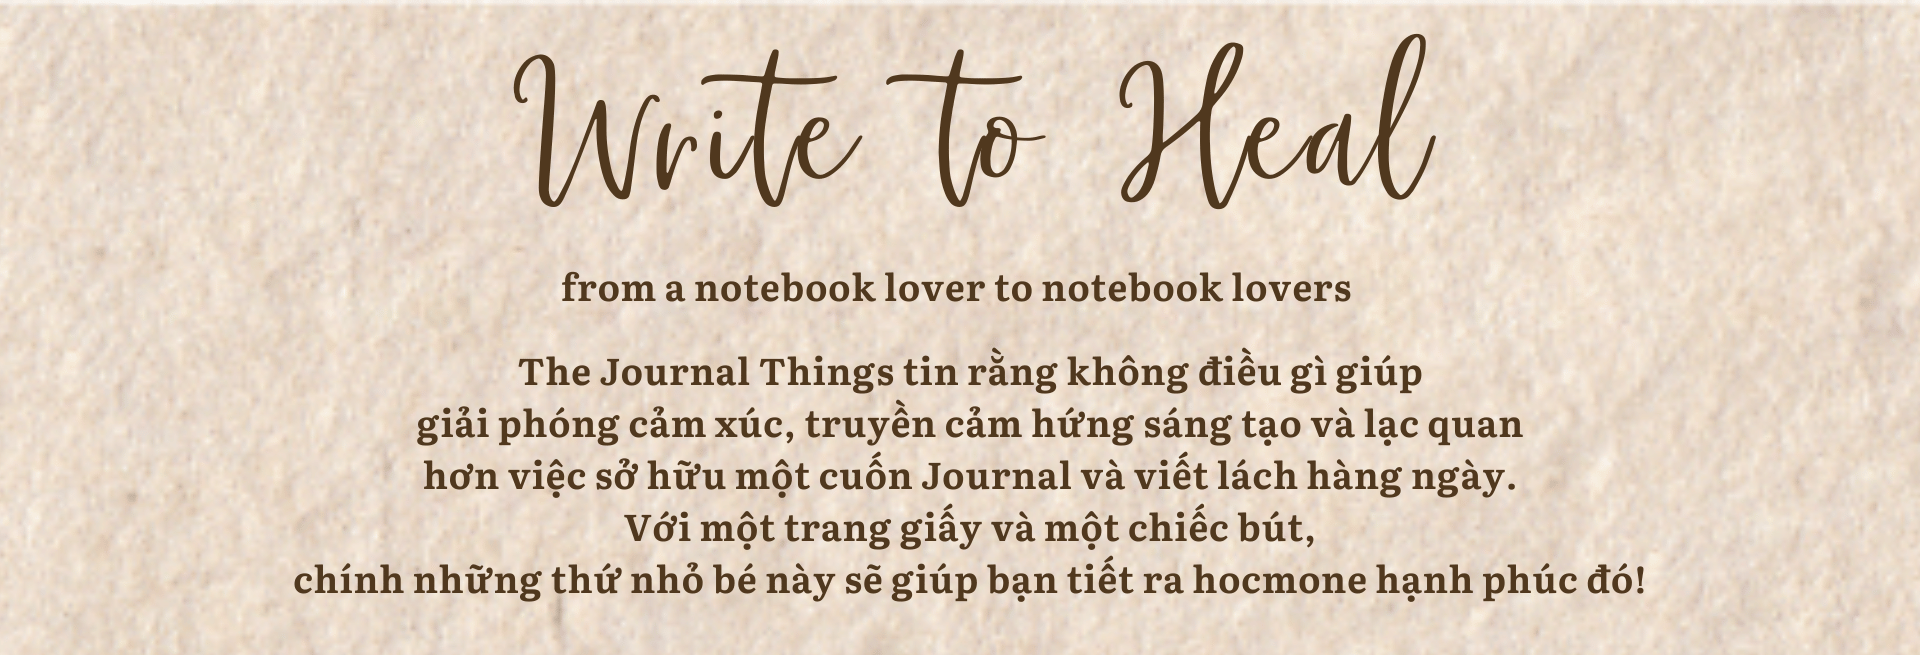 Write to Heal
from a notebook lover to notebook lovers
The Journal Things tin rằng không điều gì giúp
giải phóng cảm xúc, truyền cảm hứng sáng tạo và lạc quan
hơn việc sở hữu một cuốn Journal và viết lách hàng ngày.
Với một trang giấy và một chiếc bút,
chính những thứ nhỏ bé này sẽ giúp bạn tiết ra hocmone hạnh phúc đó!